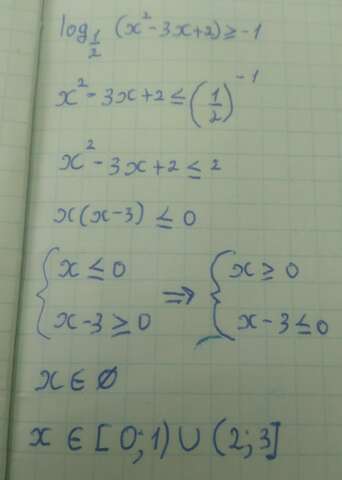 log_{1/2} (x² - 3x + 2) ≥ -1
x² - 3x + 2 ≤ (1/2)^{-1}
x² - 3x + 2 ≤ 2
x(x - 3) ≤ 0
{ x ≤ 0 ⇒ { x ≥ 0
x - 3 ≥ 0 x - 3 ≤ 0
x ∈ ∅
x ∈ [0; 1) ∪ (2; 3]